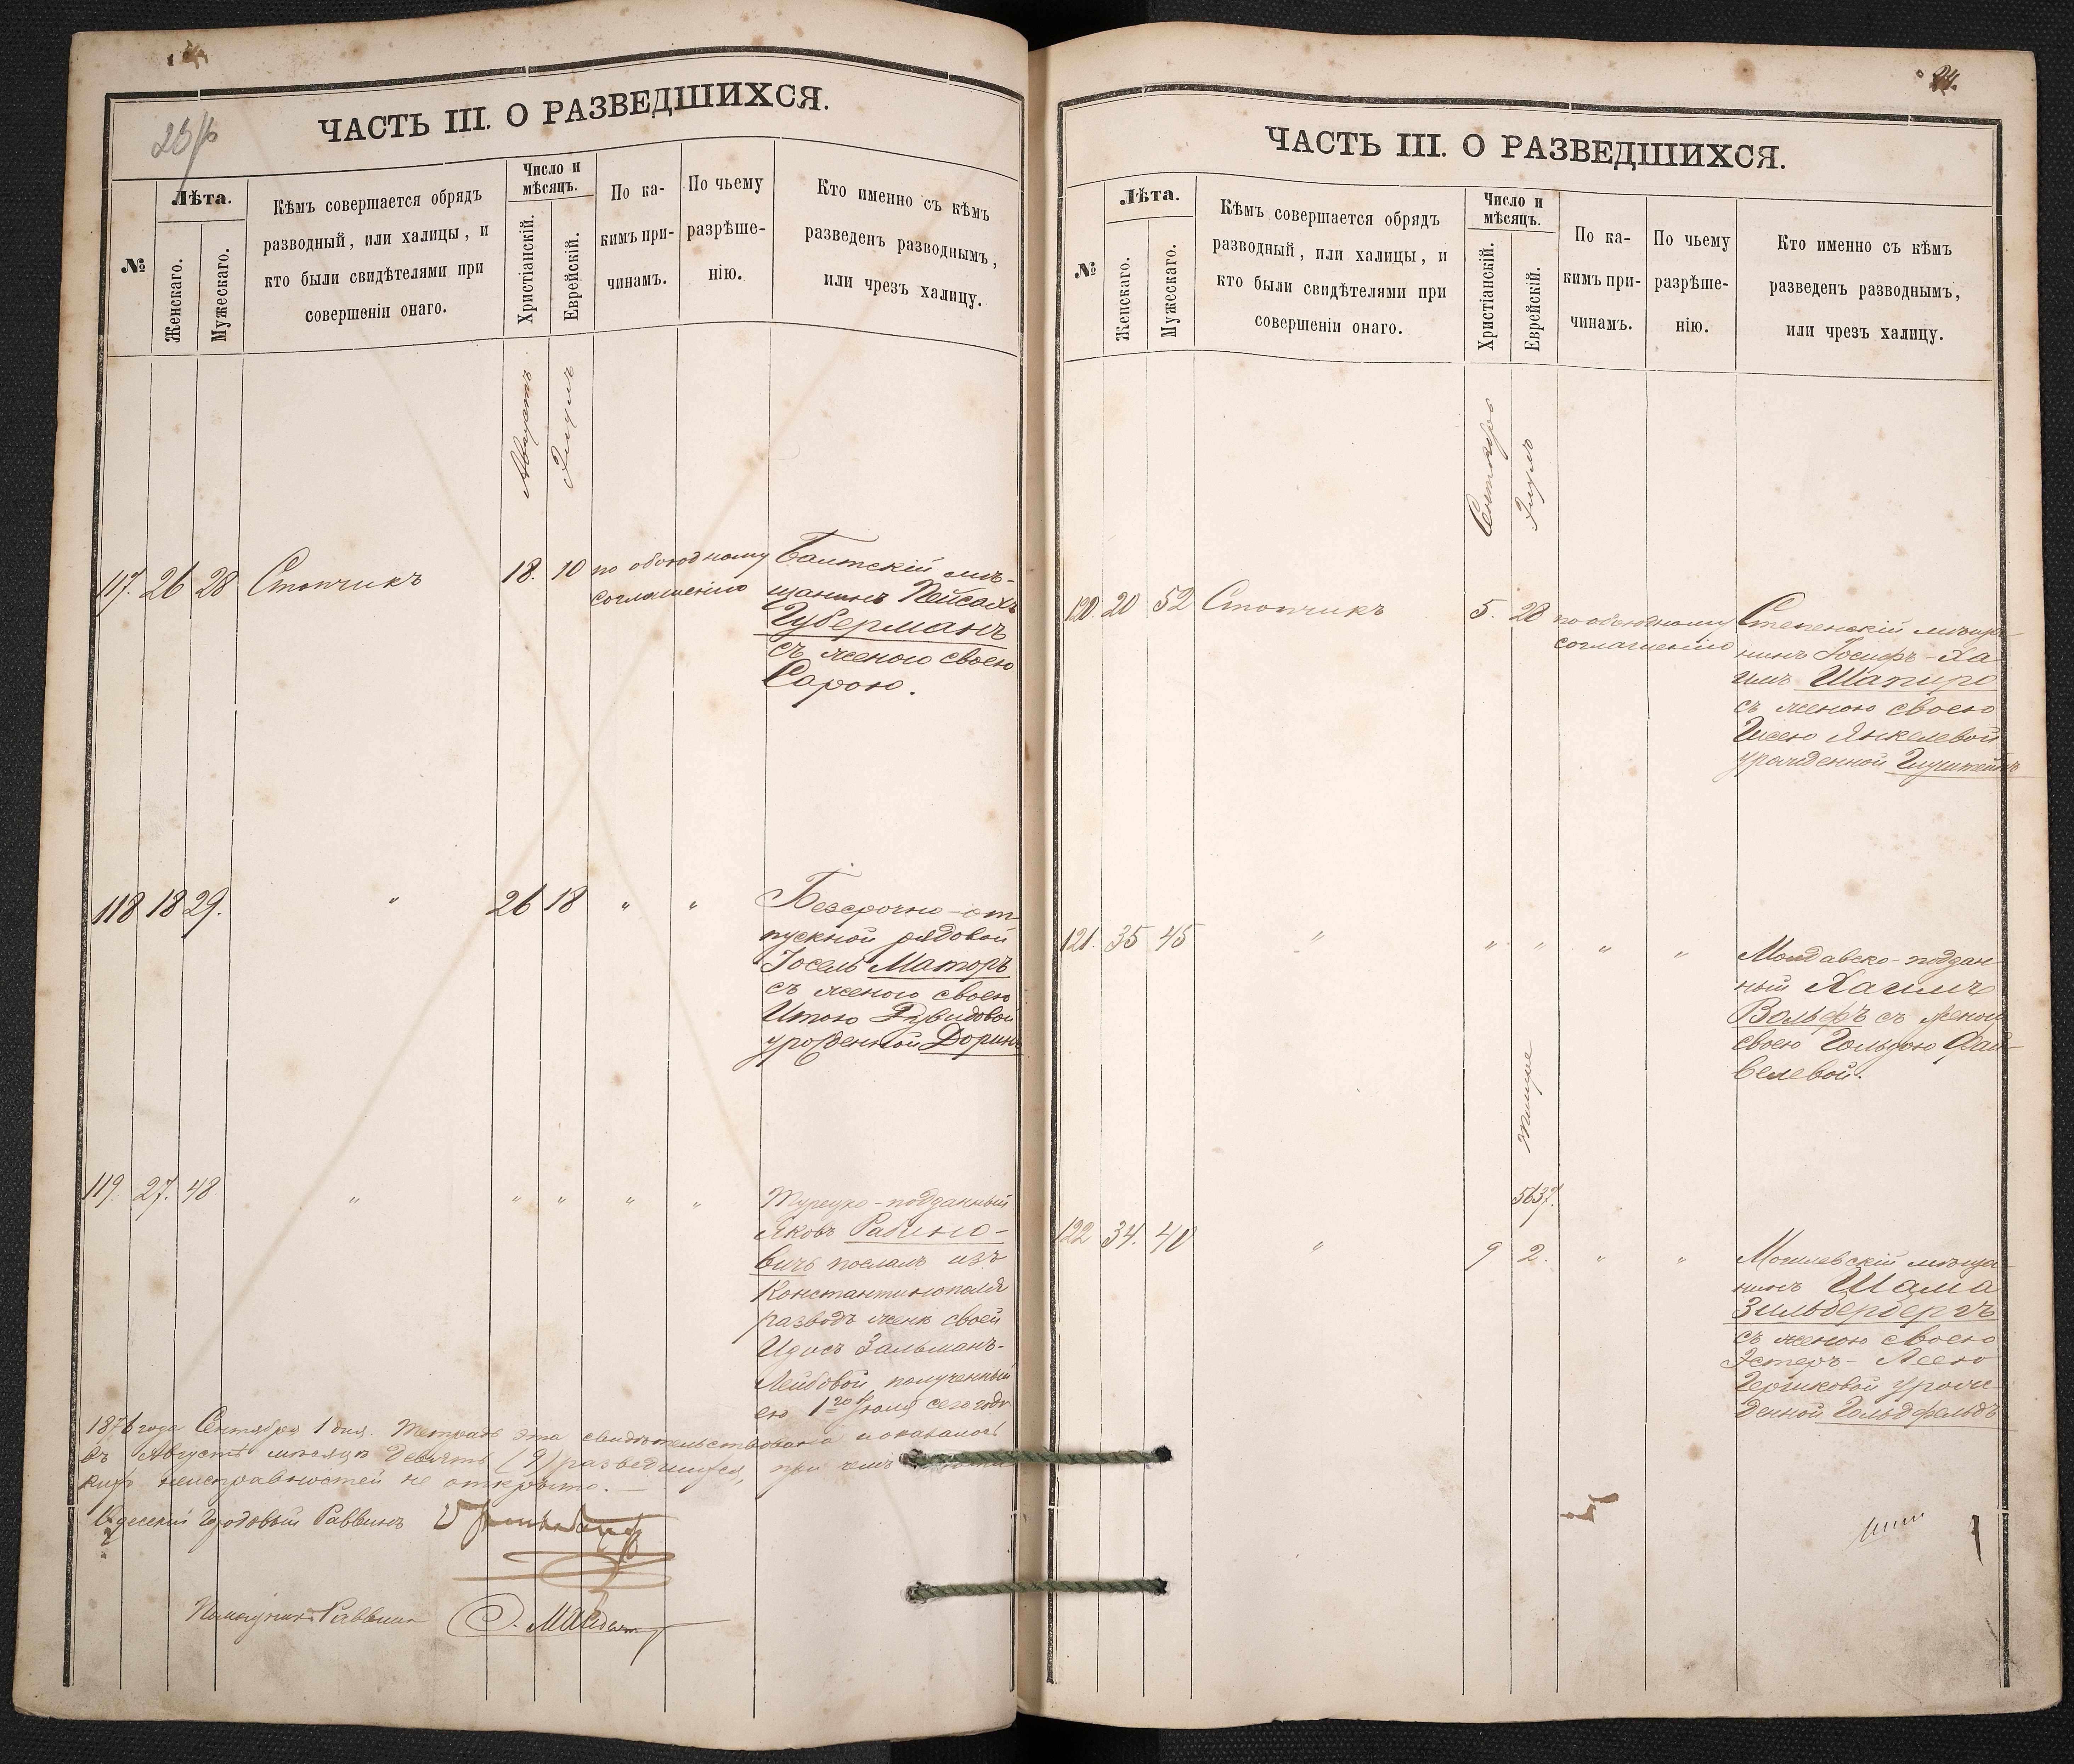 23/b
ЧАСТЬ III. О РАЗВЕДШИХСЯ.
№
Лѣта.
Женскаго.
Мужескаго.
Кѣмъ совершается обрядъ
разводный, или халицы, и
кто были свидѣтелями при
совершеніи онаго.
Число и
мѣсяцъ.
Христіанскій.
Еврейскій.
По ка-
кимъ при-
чинамъ.
По чьему
разрѣше-
нію.
Кто именно съ кѣмъ
разведенъ разводнымъ,
или чрезъ халицу.
Августъ
Элулъ
117. 26 28 Стопчикъ 18. 10 по обоюдному
соглашенію
Балтскій мѣ-
щанинъ Пейсахъ
Губерманъ
съ женою своею
Сарою.
118 18 29. " 26 18 " "
Безсрочно-от
пускной рядовой
Іосель Маторъ
съ женою своею
Итою Давидовой
урожденной Доринъ
119. 27. 48 " " " " "
Турецко-подданный
Яковъ Рабино-
вичъ послалъ изъ
Константинополя
разводъ женѣ своей
Идисъ Зальманъ-
Лейбовой полученный
ею 1го Іюля сего года
1876 года Сентября 1 дня. Тетрадь эта свидѣтельствована и оказалось
въ Августѣ мѣсяцѣ девять (9) разведшихся, при чемъ
неисправностей не открыто. —
Одесскій Городовый Раввинъ
Помощникъ Раввина
24.
ЧАСТЬ III. О РАЗВЕДШИХСЯ.
№
Лѣта.
Женскаго.
Мужескаго.
Кѣмъ совершается обрядъ
разводный, или халицы, и
кто были свидѣтелями при
совершеніи онаго.
Число и
мѣсяцъ.
Христіанскій.
Еврейскій.
По ка-
кимъ при-
чинамъ.
По чьему
разрѣше-
нію.
Кто именно съ кѣмъ
разведенъ разводнымъ,
или чрезъ халицу.
Сентябрь
Элулъ
120. 20 52 Стопчикъ 5. 28 по обоюдному
соглашенію
Степенскій мѣща-
нинъ Іосифъ-Ха
имъ Шапиро
съ женою своею
Гисею Янкелевой
урожденной
121. 35 45 " " " " "
Молдавско-поддан-
ный Хаимъ
Вольфъ съ женою
своею Гольдою Фай-
велевой.
Тишре
5637.
122 34. 40 " 9 2. " "
Могилевскій мѣща-
нинъ Шама
Зильбербергъ
съ женою своею
Эстеръ-Леею
Гершковой урож-
денной Гольдфельдъ